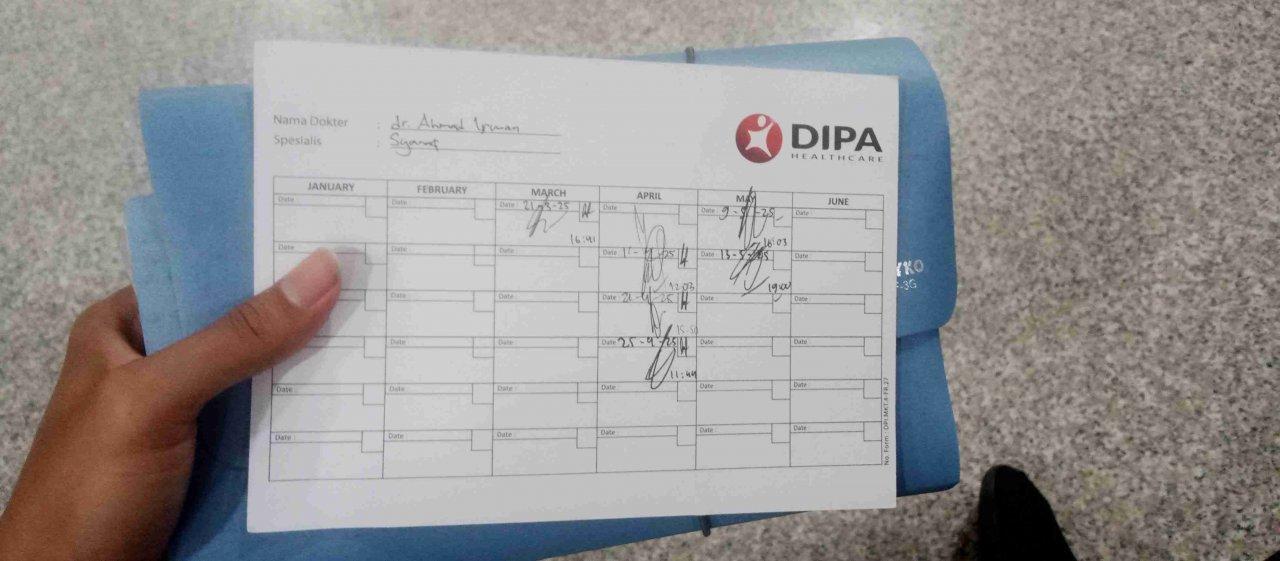 Nama Dokter : dr. Ahmad
Spesialis :
DIPA
HEALTHCARE
JANUARY FEBRUARY MARCH APRIL MAY JUNE
Date Date Date 21-3-25 Date Date 9-5-25 Date
16:41 16:03
Date Date Date Date 25 Date 13-5-25 Date
12:03 19:00
Date Date Date Date 25 Date Date
15:50
Date Date Date Date 25-4-25 Date Date
11:44
Date Date Date Date Date Date
Date Date Date Date Date Date
No. Form : DPI.MKT.4-FR.27
YKO
-3G